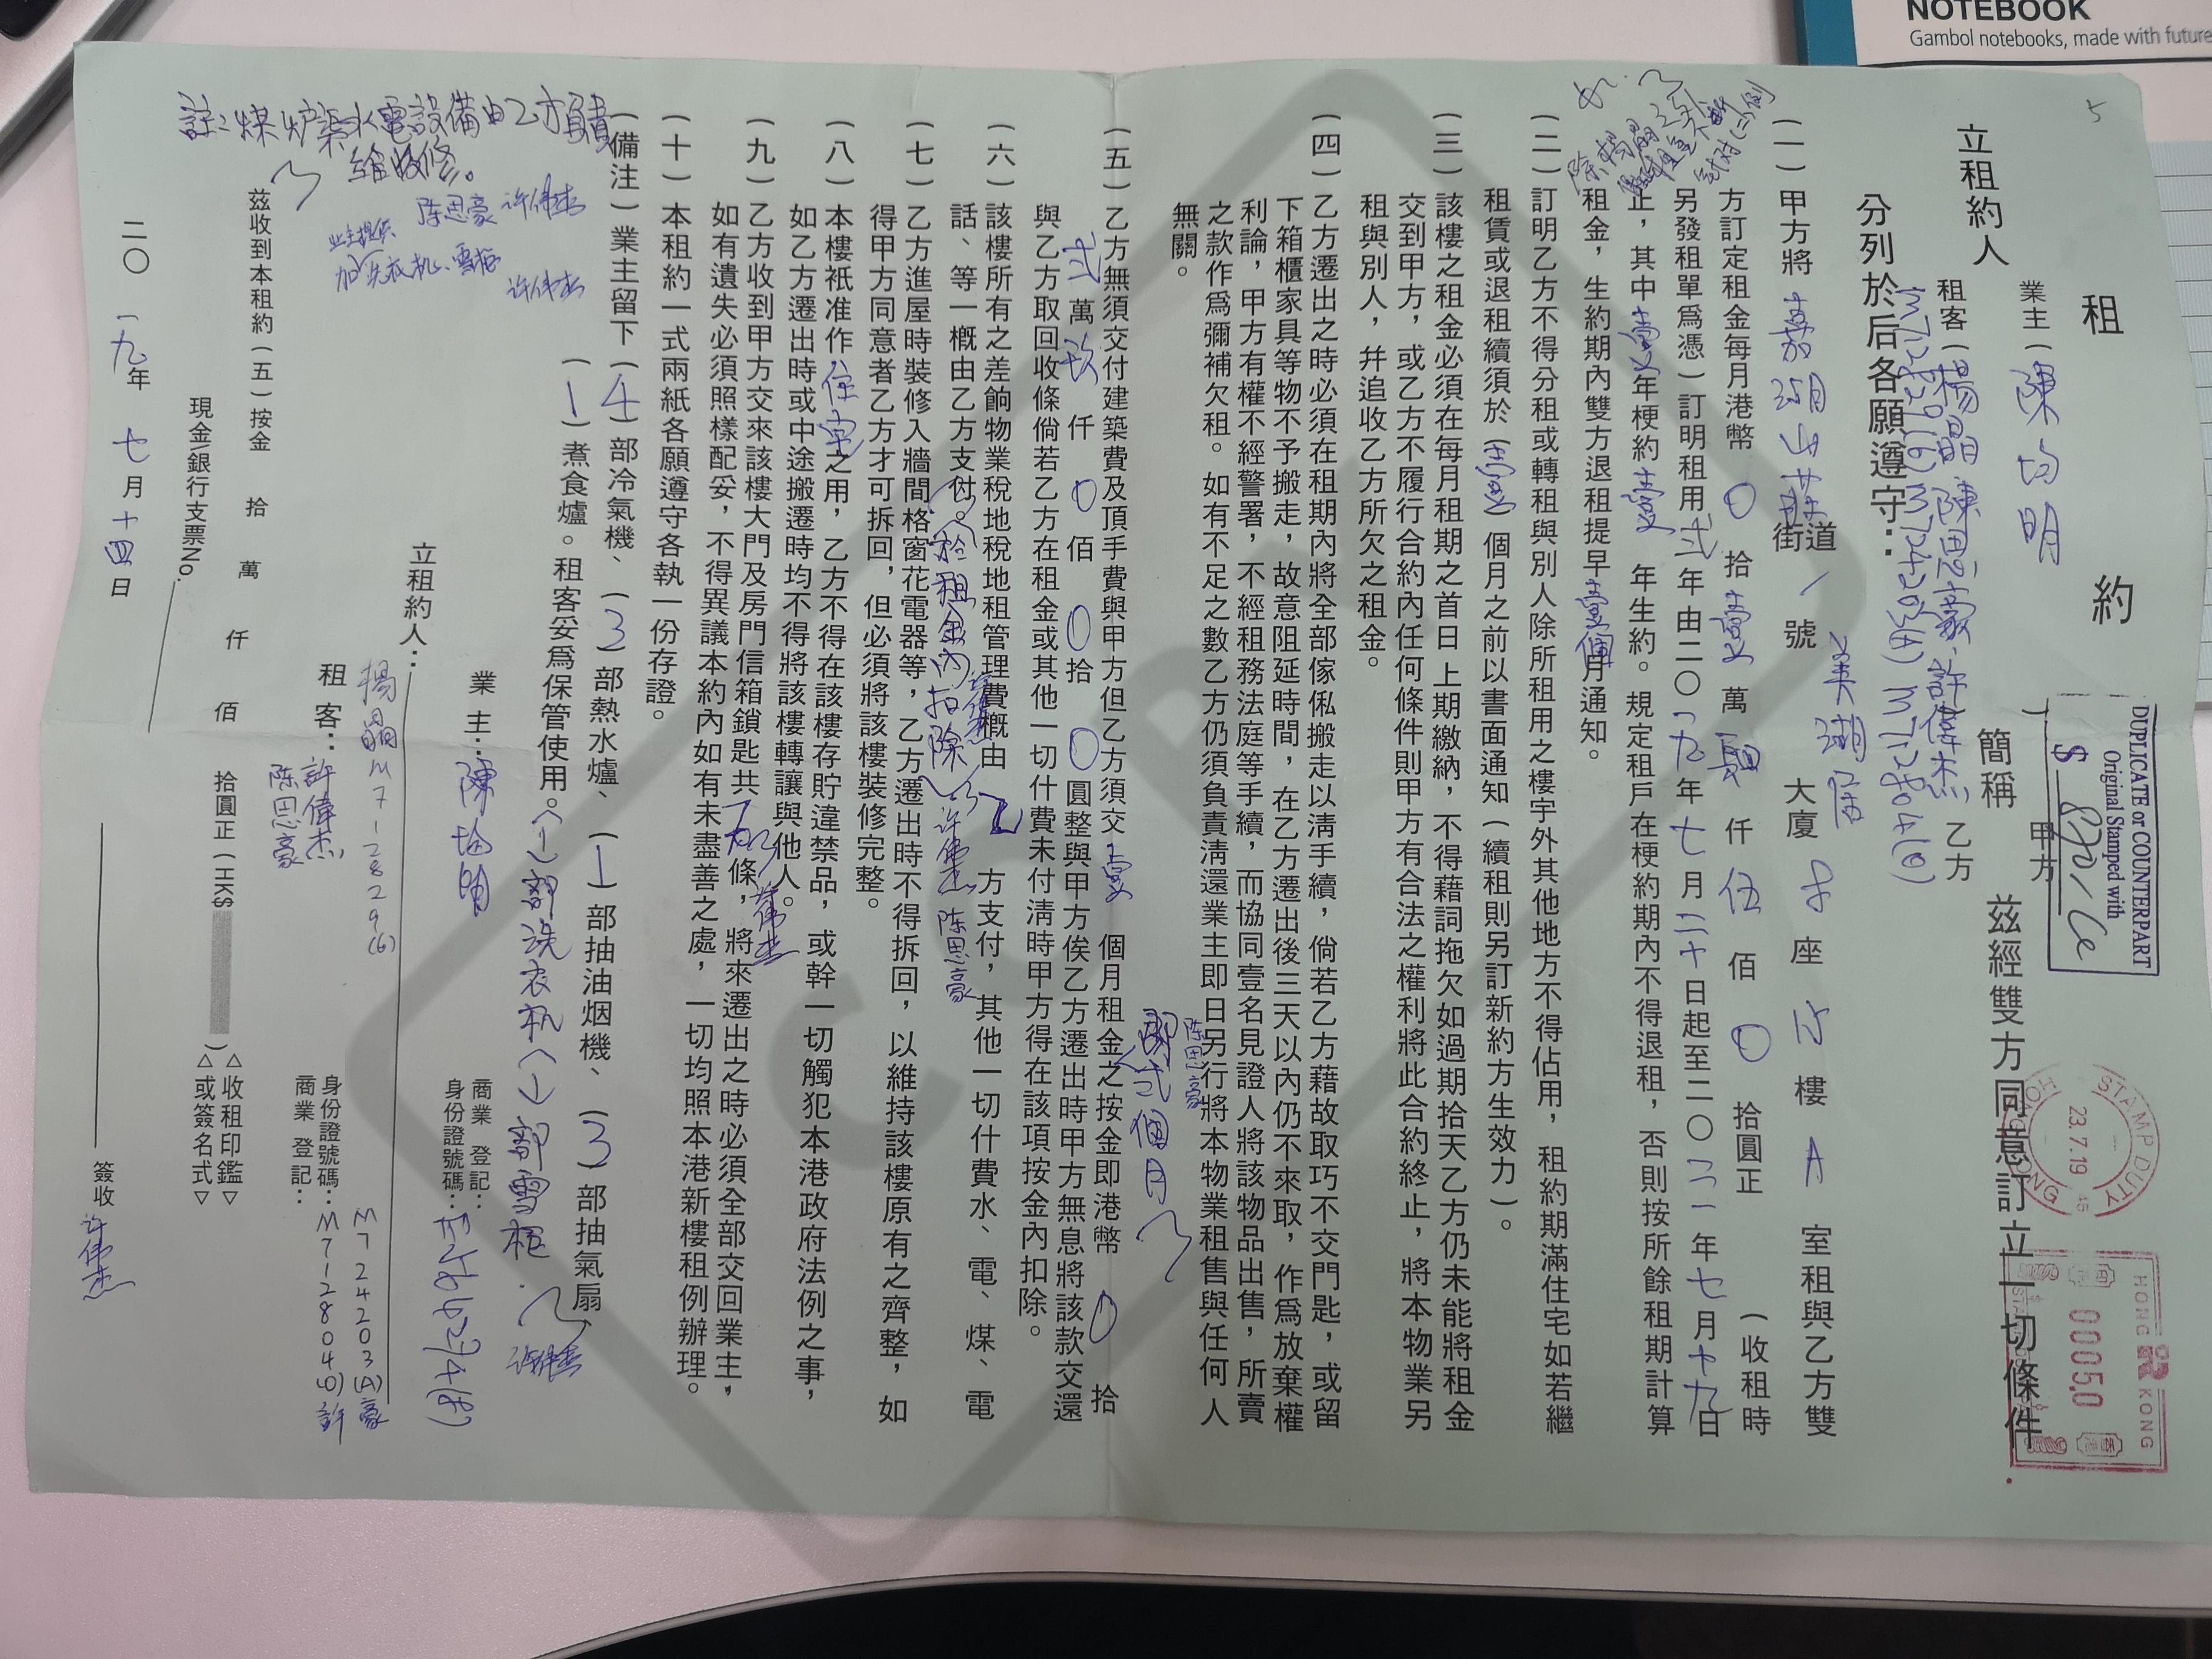 租約
立租約人
業主（陳均明）簡稱甲方
租客（楊晶晶 陳思豪、許偉杰）簡稱乙方
茲經雙方同意訂立一切條件
分列於后各願遵守：
DUPLICATE or COUNTERPART
Original Stamped with
$
HONG KONG STAMP DUTY
23.7.19
HONG KONG
00050
5
（一）甲方將嘉湖山莊街道 / 號 美湖居 大廈 座 樓 A 室租與乙方雙
方訂定租金每月港幣 0 拾壹萬 仟伍佰 0 拾圓正（收租時
另發租單爲憑）訂明租用弍年由二〇一九年七月二十日起至二〇二一年七月十九日
止，其中壹年梗約壹年生約。規定租戶在梗約期內不得退租，否則按所餘租期計算
租金，生約期內雙方退租提早壹個月通知。
（二）訂明乙方不得分租或轉租與別人除所租用之樓宇外其他地方不得佔用，租約期滿住宅如若繼
租賃或退租續須於（壹）個月之前以書面通知（續租則另訂新約方生效力）。
（三）該樓之租金必須在每月租期之首日上期繳納，不得藉詞拖欠如過期拾天乙方仍未能將租金
交到甲方，或乙方不履行合約內任何條件則甲方有合法之權利將此合約終止，將本物業另
租與別人，幷追收乙方所欠之租金。
（四）乙方遷出之時必須在租期內將全部傢俬搬走以淸手續，倘若乙方藉故取巧不交門匙，或留
下箱櫃家具等物不予搬走，故意阻延時間，在乙方遷出後三天以內仍不來取，作爲放棄權
利論，甲方有權不經警署，不經租務法庭等手續，而協同壹名見證人將該物品出售，所賣
之款作爲彌補欠租。如有不足之數乙方仍須負責淸還業主即日另行將本物業租售與任何人
無關。
陈思豪
即弍個月
（五）乙方無須交付建築費及頂手費與甲方但乙方須交壹個月租金之按金即港幣 0 拾
弍萬玖仟 0 佰 0 拾 0 圓整與甲方俟乙方遷出時甲方無息將該款交還
與乙方取回收條倘若乙方在租金或其他一切什費未付淸時甲方得在該項按金內扣除。
（六）該樓所有之差餉物業稅地稅地租管理費概由乙方支付，其他一切什費水、電、煤、電
話、等一概由乙方支付。於租金內扣除 许偉杰 陈思豪
（七）乙方進屋時裝修入牆間格窗花電器等，乙方遷出時不得拆回，以維持該樓原有之齊整，如
得甲方同意者乙方才可拆回，但必須將該樓裝修完整。
（八）本樓祇准作住宅之用，乙方不得在該樓存貯違禁品，或幹一切觸犯本港政府法例之事，
如乙方遷出時或中途搬遷時均不得將該樓轉讓與他人。
（九）乙方收到甲方交來該樓大門及房門信箱鎖匙共 條，將來遷出之時必須全部交回業主，
如有遺失必須照樣配妥，不得異議本約內如有未盡善之處，一切均照本港新樓租例辦理。
（十）本租約一式兩紙各願遵守各執一份存證。
（備注）業主留下（4）部冷氣機、（3）部熱水爐、（1）部抽油烟機、（3）部抽氣扇
（1）煮食爐。租客妥爲保管使用。（1）部洗衣机（1）部雪柜.
许偉杰
註：煤炉渠水電設備由乙方負責
維修。
陈思豪 许偉杰
业主提供
加洗衣机、雪柜 许偉杰
立租約人：
業主：陳均明
商業登記：
身份證號碼：
租客：
楊晶晶 M712829(6)
許偉杰
陈思豪
身份證號碼：M724203(A)豪
商業登記：M712804(0)許
茲收到本租約（五）按金 拾 萬 仟 佰 拾圓正（HK$ ）
△收租印鑑▽
△或簽名式▽
現金/銀行支票No.
二〇一九年七月十四日
簽收 许偉杰
COPY
NOTEBOOK
Gambol notebooks, made with future